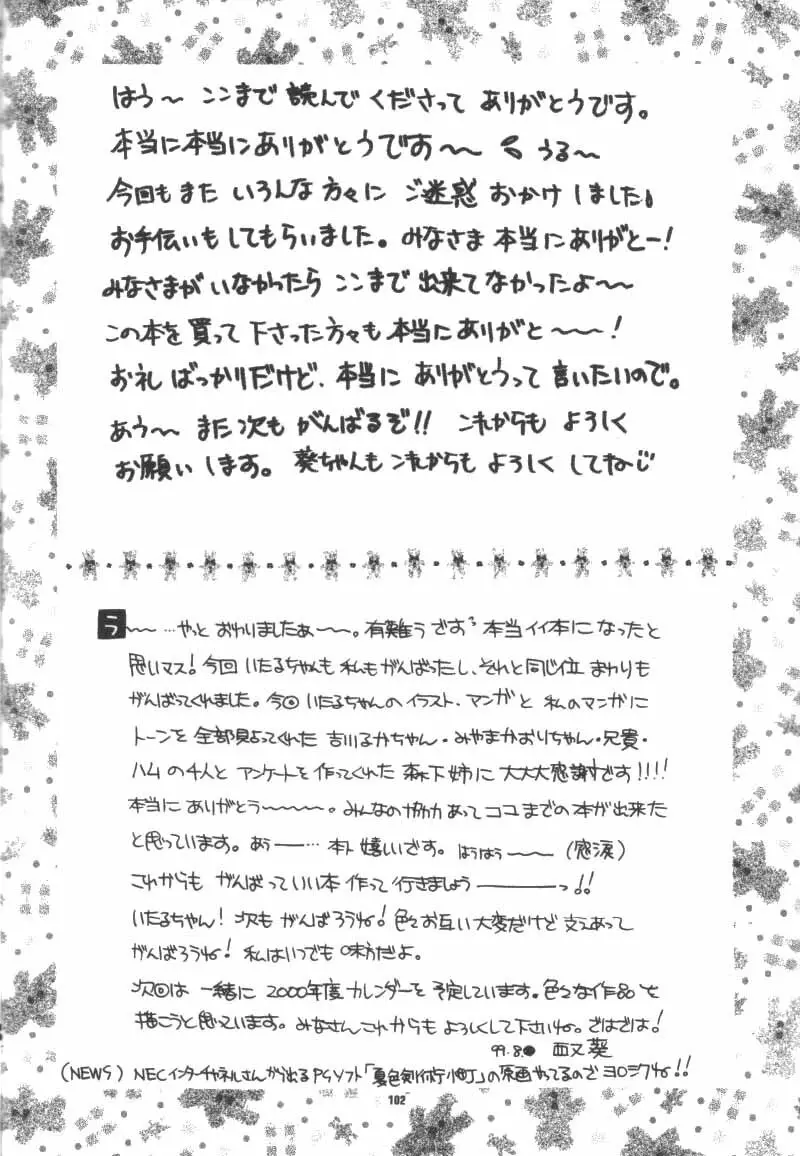 はう〜 ここまで 読んで くださって ありがとうです。
本当に本当にありがとうですぉ〜〜 うる〜
今回もまた いろんな方々に ご迷惑 おかけしました。
お手伝いもしてもらいました。みなさま 本当にありがとー!
みなさまが いなかったら ここまで 出来てなかったよ〜〜
この本を買って下さった方々も本当にありがと〜〜!
お礼ばっかりだけど、本当に ありがとうって 言いたいので。
あう〜 また次も がんばるぞ!! これからも よろしく
お願いします。葵ちゃんも これからも よろしく してね
う〜〜…やっと おわりましたぁ〜〜。有難うざす 本当イイ本になったと
思いマス! 今回 いたるちゃんも 私もがんばったし、それと同じ位 まわりも
がんばってくれました。今回 いたるちゃんの イラスト、マンガと 私のマンガに
トーンを 全部貼ってくれた 吉川るかちゃん・みやまかおりちゃん・兄貴・
ハムの4人と アンケートを作ってくれた 森下姉に 大大大感謝です!!!!
本当に ありがとう〜〜〜。みんなの協力あって ココまでの本が出来た
と思っています。あぅ――… 本ト 嬉しいざす。はうはう〜〜 (感涙)
これからも がんばっていい本 作って行きましょう―――っ!!
いたるちゃん! 次も がんばろうね! 色々お互い大変だけど 支えあって
がんばろうね! 私はいつでも 味方だよ。
次回は 一緒に 2000年度 カレンダーを予定しています。色々な作品を
描こうと思っています。みなさんこれからも よろしくして下さいね。ではでは!
99.8. 葵
(NEWS) NECインターチャネルさんから出るPSソフト「夏色剣術小町」の原画やってるので ヨロシクね!!
102